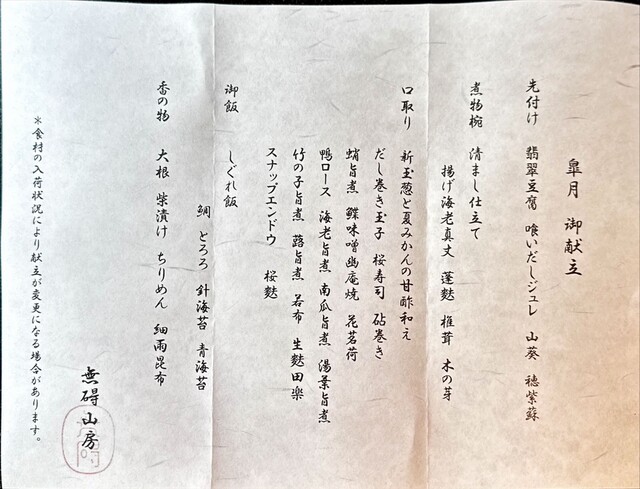 皐月 御献立
先付け 翡翠豆腐 喰いだしジュレ 山葵 穂紫蘇
煮物椀 清まし仕立て
揚げ海老真丈 蓬麩 椎茸 木の芽
口取り 新玉葱と夏みかんの甘酢和え
だし巻き玉子 桜寿司 砧巻き
蛸旨煮 鰈味噌幽庵焼 花茗荷
鴨ロース 海老旨煮 南瓜旨煮 湯葉旨煮
竹の子旨煮 蕗旨煮 若布 生麩田楽
スナップエンドウ 桜麩
御飯 しぐれ飯
鯛 とろろ 針海苔 青海苔
香の物 大根 柴漬け ちりめん 細雨昆布
＊食材の入荷状況により献立が変更になる場合があります。
無碍山房